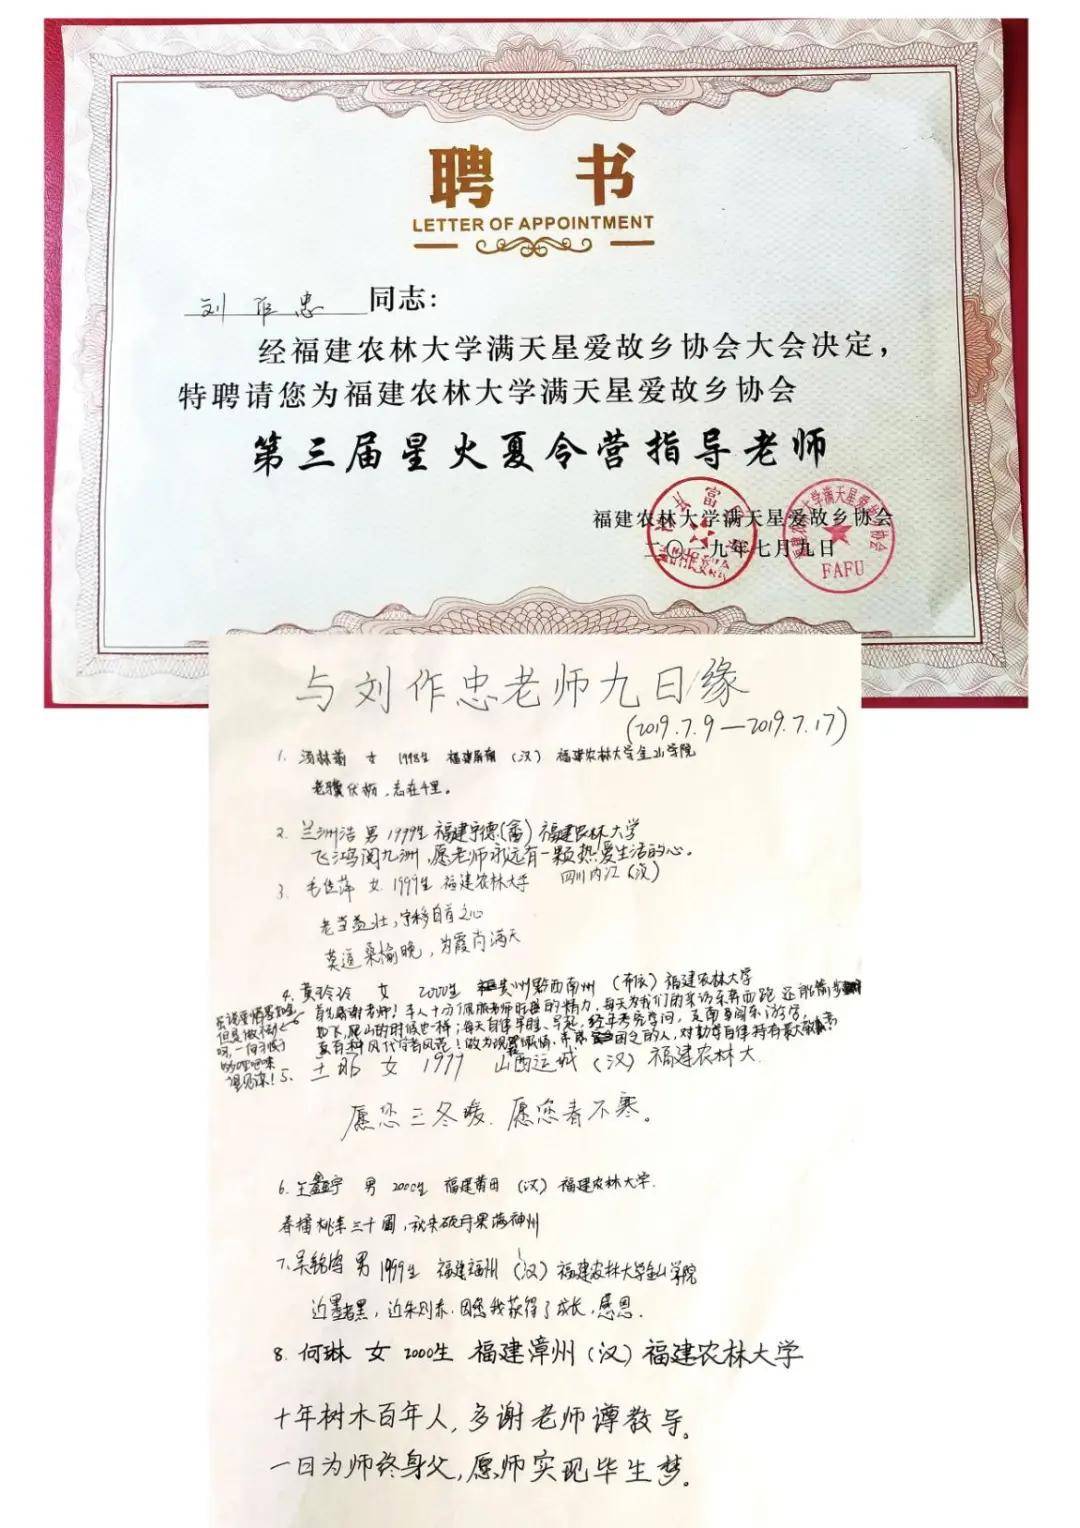 聘 书
LETTER OF APPOINTMENT
刘作忠 同志:
经福建农林大学满天星爱故乡协会大会决定，
特聘请您为福建农林大学满天星爱故乡协会
第三届星火夏令营指导老师
福建农林大学满天星爱故乡协会
二〇一九年七月九日
FAFU
与刘作忠老师九日缘
(2019.7.9—2019.7.17)
1. 汤林菊 女 1998生 福建屏南 (汉) 福建农林大学金山学院
老骥伏枥，志在千里。
2. 兰洲浩 男 1999生 福建宁德(畲) 福建农林大学
飞鸿阅九洲，愿老师永远有一颗热爱生活的心。
3. 毛佳萍 女 1999生 福建农林大学 四川内江 (汉)
老当益壮，宁移白首之心
莫道桑榆晚，为霞尚满天
4. 黄玲玲 女 2000生 贵州黔西南州 (布依) 福建农林大学
首先感谢老师！本人十分佩服老师旺盛的精力，每天为我们的采访东奔西跑
爬山的时候也一样；每天自律早睡、早起
5. 王 女 1999 山西运城 (汉) 福建农林大
愿您三冬暖，愿您春不寒。
6. 王鑫宇 男 2000生 福建莆田 (汉) 福建农林大学.
春播桃李三十圃，秋来硕果满神州
7. 吴铭鸿 男 1999生 福建福州 (汉) 福建农林大学金山学院
近墨者黑，近朱则赤，因您我获得了成长，感恩.
8. 何琳 女 2000生 福建漳州 (汉) 福建农林大学
十年树木百年人，多谢老师谆教导。
一日为师终身父，愿师实现毕生梦。